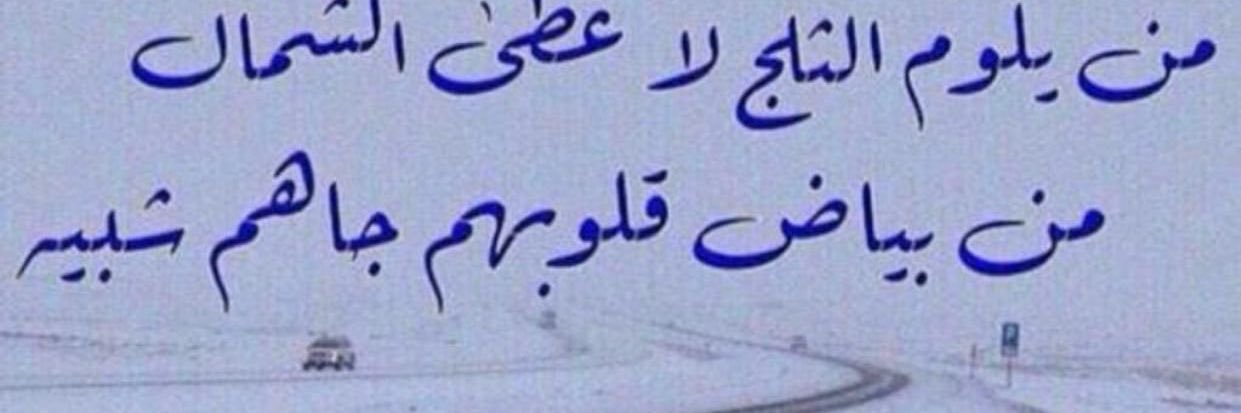 من يلوم الثلج لا عطى الشمال
من بياض قلوبهم جاهم شبيه